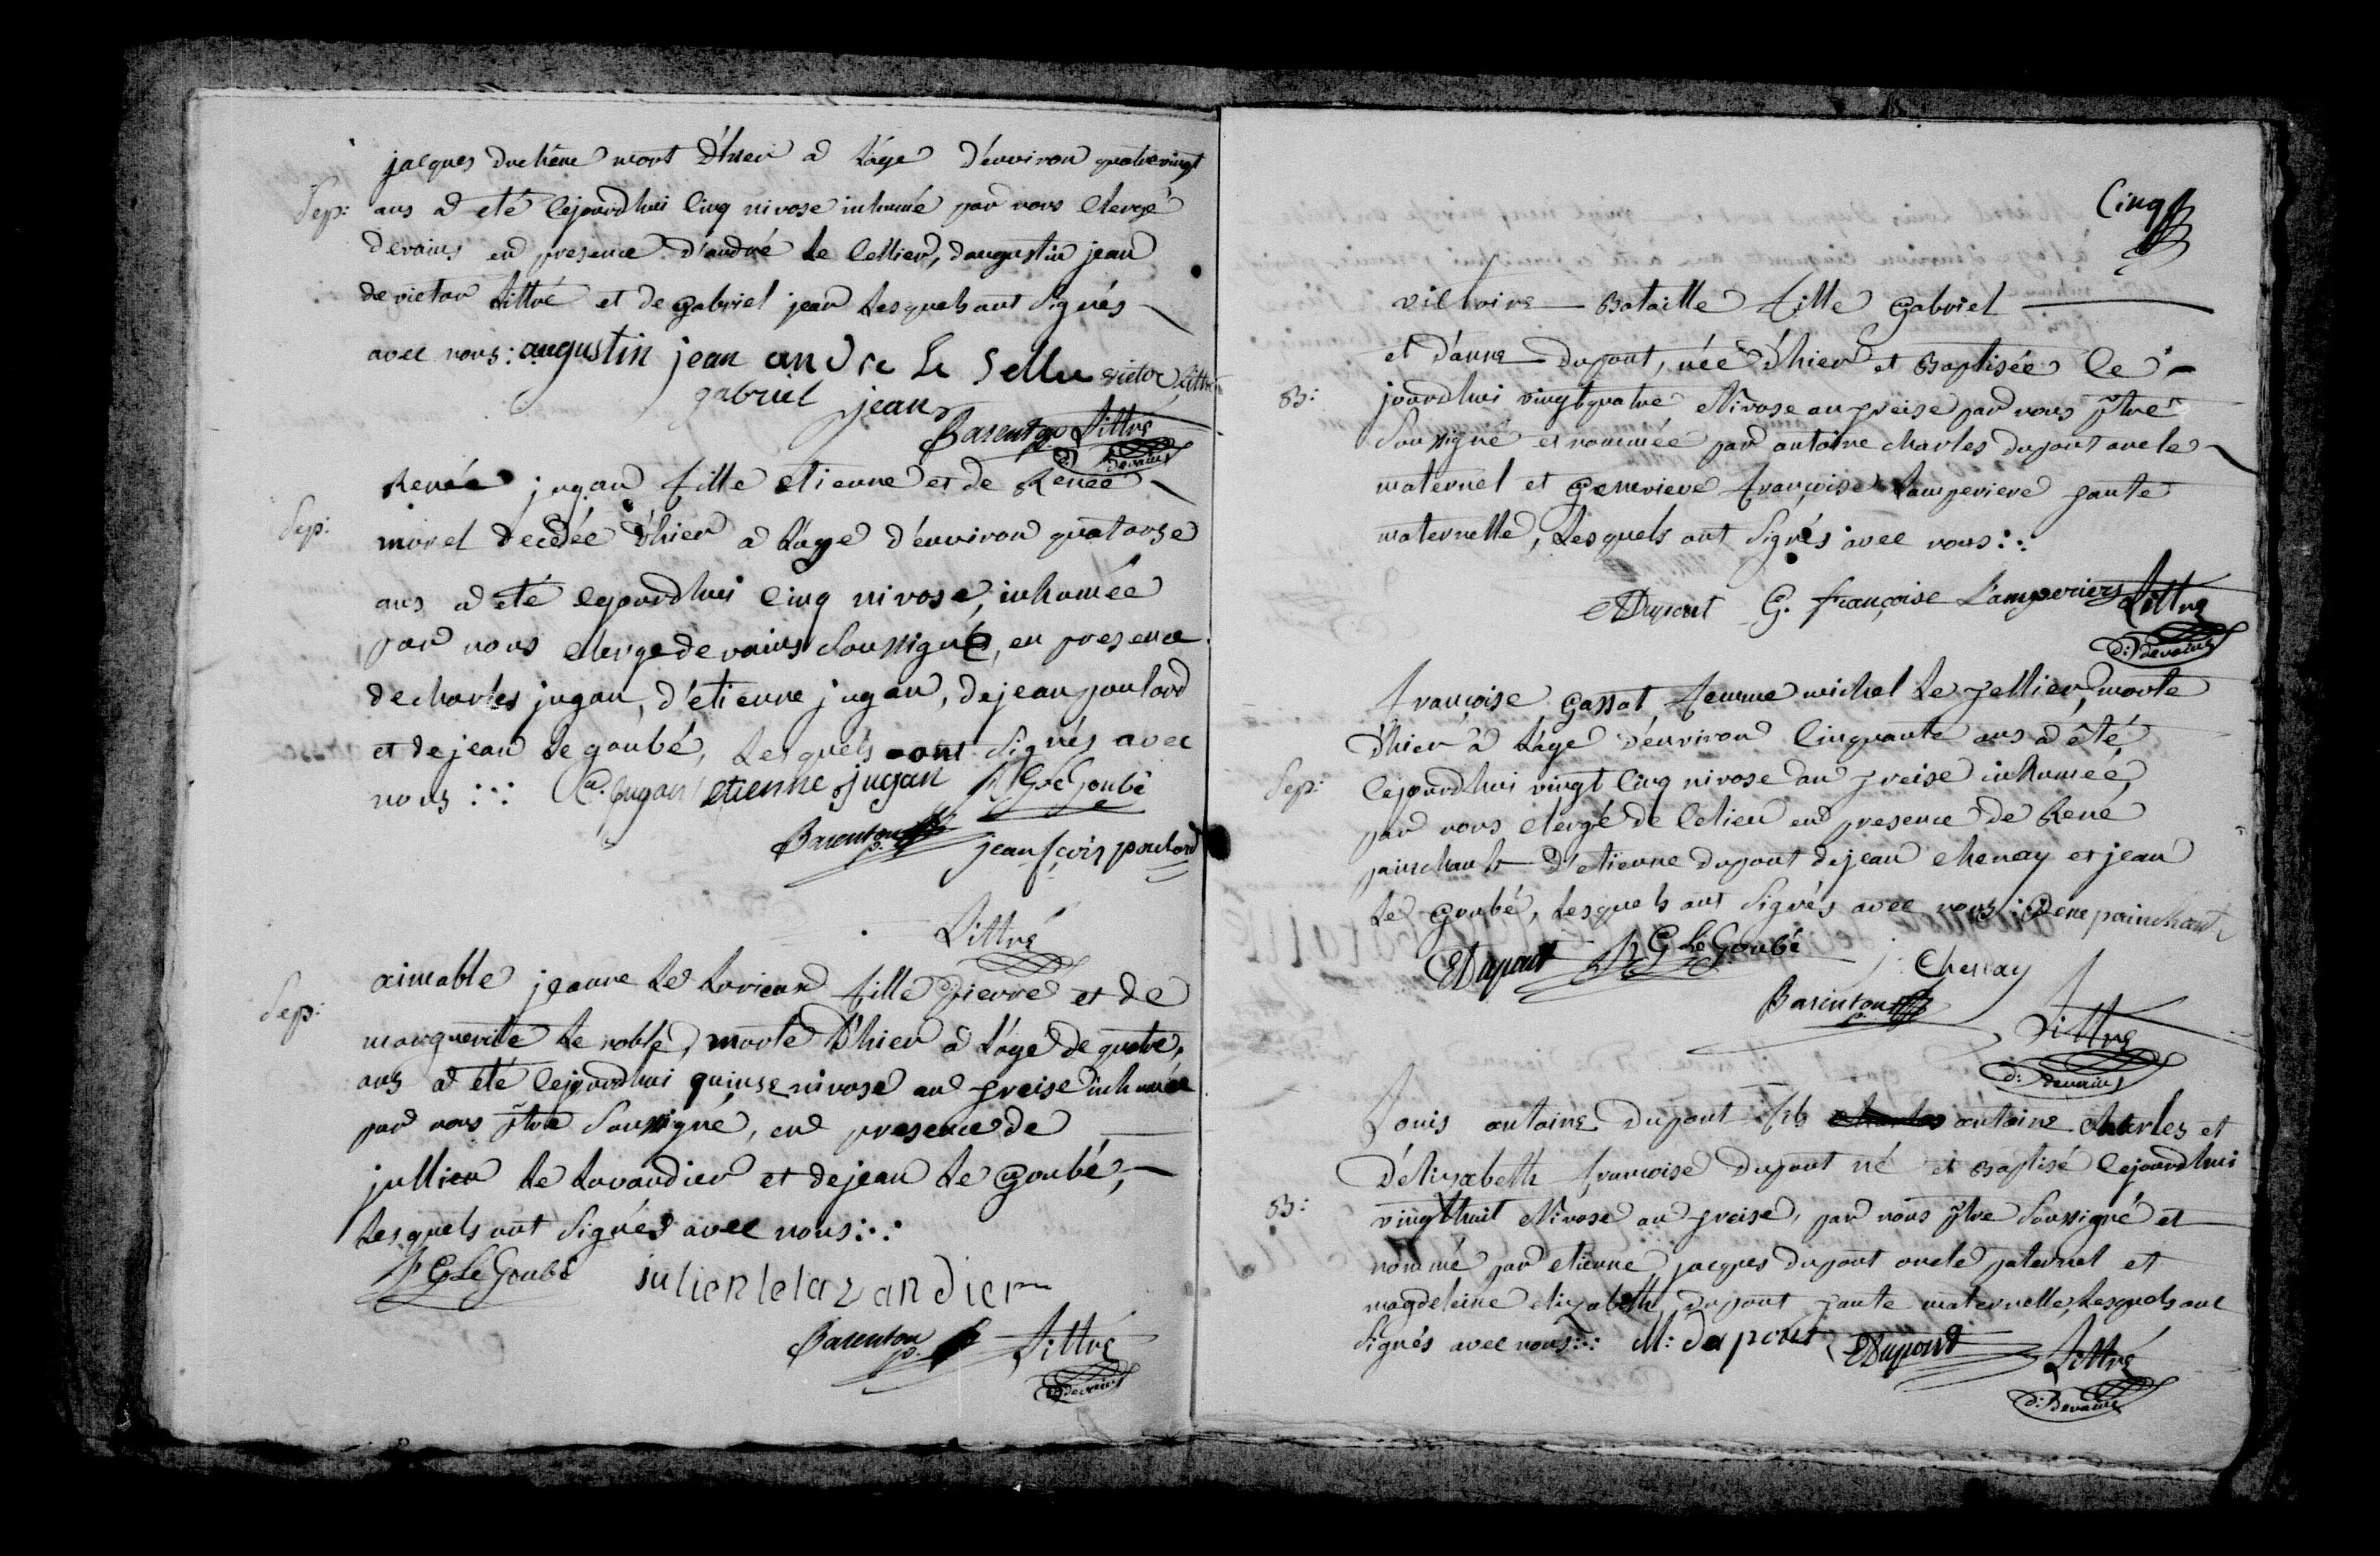 jacques duchêne mort d'hier a l'âge d'environ quatrevingt
Sep: ans a eté cejourdhui cinq nivose inhumé par nous clergé
devains en presence d'andré le cellier, daugustin jean
de victor Littré et de gabriel jean lesquels ont signés
avec nous: augustin jean andre le sellie victor Littré
gabriel jean
Barenton Littré
p.
d: devains
Renée jugan fille etienne et de Renée
Sep: morel decedée d'hier a l'age d'environ quatorze
ans a eté cejourdhui cinq nivose, inhumée
par nous clerge devains soussigné, en presence
de charles jugan, d'etienne jugan, de jean poulard
et de jean le goubé, lesquels ont signés avec
nous :·: C. jugan etienne jugan J G Le Goubé
Barenton jean fçois poulard
p.
Littré
aimable jeanne le Lorieux fille pierre et de
Sep: marguerite le noble, morte d'hier a l'age de quatre
ans a eté cejourdhui quinze nivose an treise inhumée
par nous ptre soussigné, en presence de
jullien le Lavandier et de jean le goubé,
lesquels ont signés avec nous:·:
J G Le Goubé julien lelavandier
Barenton Littré
p.
d: devains
Cinq
victoire Bataille fille gabriel
et d'anne dupont, née d'hier et Baptisée ce
B: jourdhui vingtquatre Nivose an treise par nous ptre
soussigné et nommée par antoine charles dupont oncle
maternel et genevieve françoise Lamperiere tante
maternelle, lesquels ont signés avec nous:·:
Dupont G. françoise Lamperiere Littré
d: devains
françoise gassot femme michel le tellier, morte
d'hier a l'age d'environ cinquante ans a été
Sep: cejourdhui vingt cinq nivose an treise inhumée,
par nous clergé de celieu en presence de René
painchault d'etienne dupont de jean chenay et jean
le goubé, lesquels ont signés avec nous: Rene painchaut
EDupont J G Le Goubé j: Chenay
Barenton Littré
p.
d: devains
Louis antoine dupont fils charles antoine charles et
d'élizabeth françoise dupont né et Baptisé cejourdhui
B: vingthuit Nivose an treise, par nous ptre soussigné et
nommé par etienne jacques dupont oncle paternel et
magdeleine elizabeth dupont tante maternelle, lesquels ont
signés avec nous:·: M: dupont EDupont Littré
d: Devains